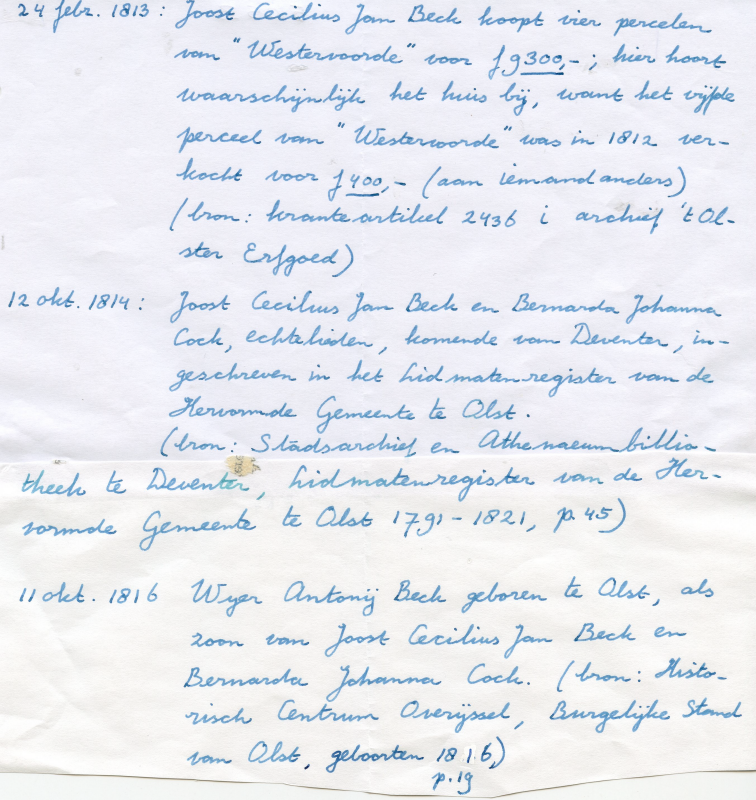 24 febr. 1813: Joost Cecilius Jan Beck koopt vier percelen
van "Westervoorde" voor ƒ 9300,-; hier hoort
waarschijnlijk het huis bij, want het vijfde
perceel van "Westervoorde" was in 1812 ver-
kocht voor ƒ 400,- (aan iemand anders)
(bron: kranteartikel 2436 i archief 't Ol-
ster Erfgoed)
12 okt. 1814: Joost Cecilius Jan Beck en Bernarda Johanna
Cock, echtelieden, komende van Deventer, in-
geschreven in het Lidmatenregister van de
Hervormde Gemeente te Olst.
(bron: Stadsarchief en Athenaeumbiblio-
theek te Deventer, Lidmatenregister van de Her-
vormde Gemeente te Olst 1791-1821, p. 45)
11 okt. 1816 Wyer Antonij Beck geboren te Olst, als
zoon van Joost Cecilius Jan Beck en
Bernarda Johanna Cock. (bron: Histo-
risch Centrum Overijssel, Burgelijke Stand
van Olst, geboorten 1816,)
p. 19